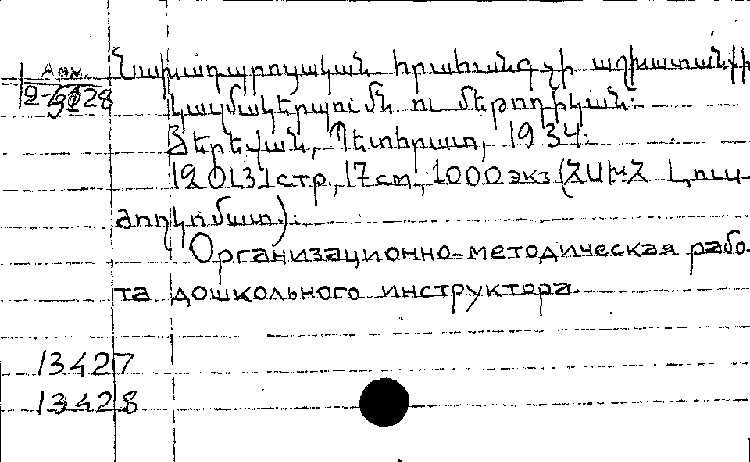 Арм. Նախադպրոցական հրահանգչի աշխատանքի
2-5128 կազմակերպումն ու մեթոդիկան:
Յերեվան, Պետհրատ, 1934:
120[3] стр, 17см, 1000 экз (ՀՍԽՀ Լուս-
ժողկոմատ):
Организационно-методическая рабо-
та дошкольного инструктора
13427
13428